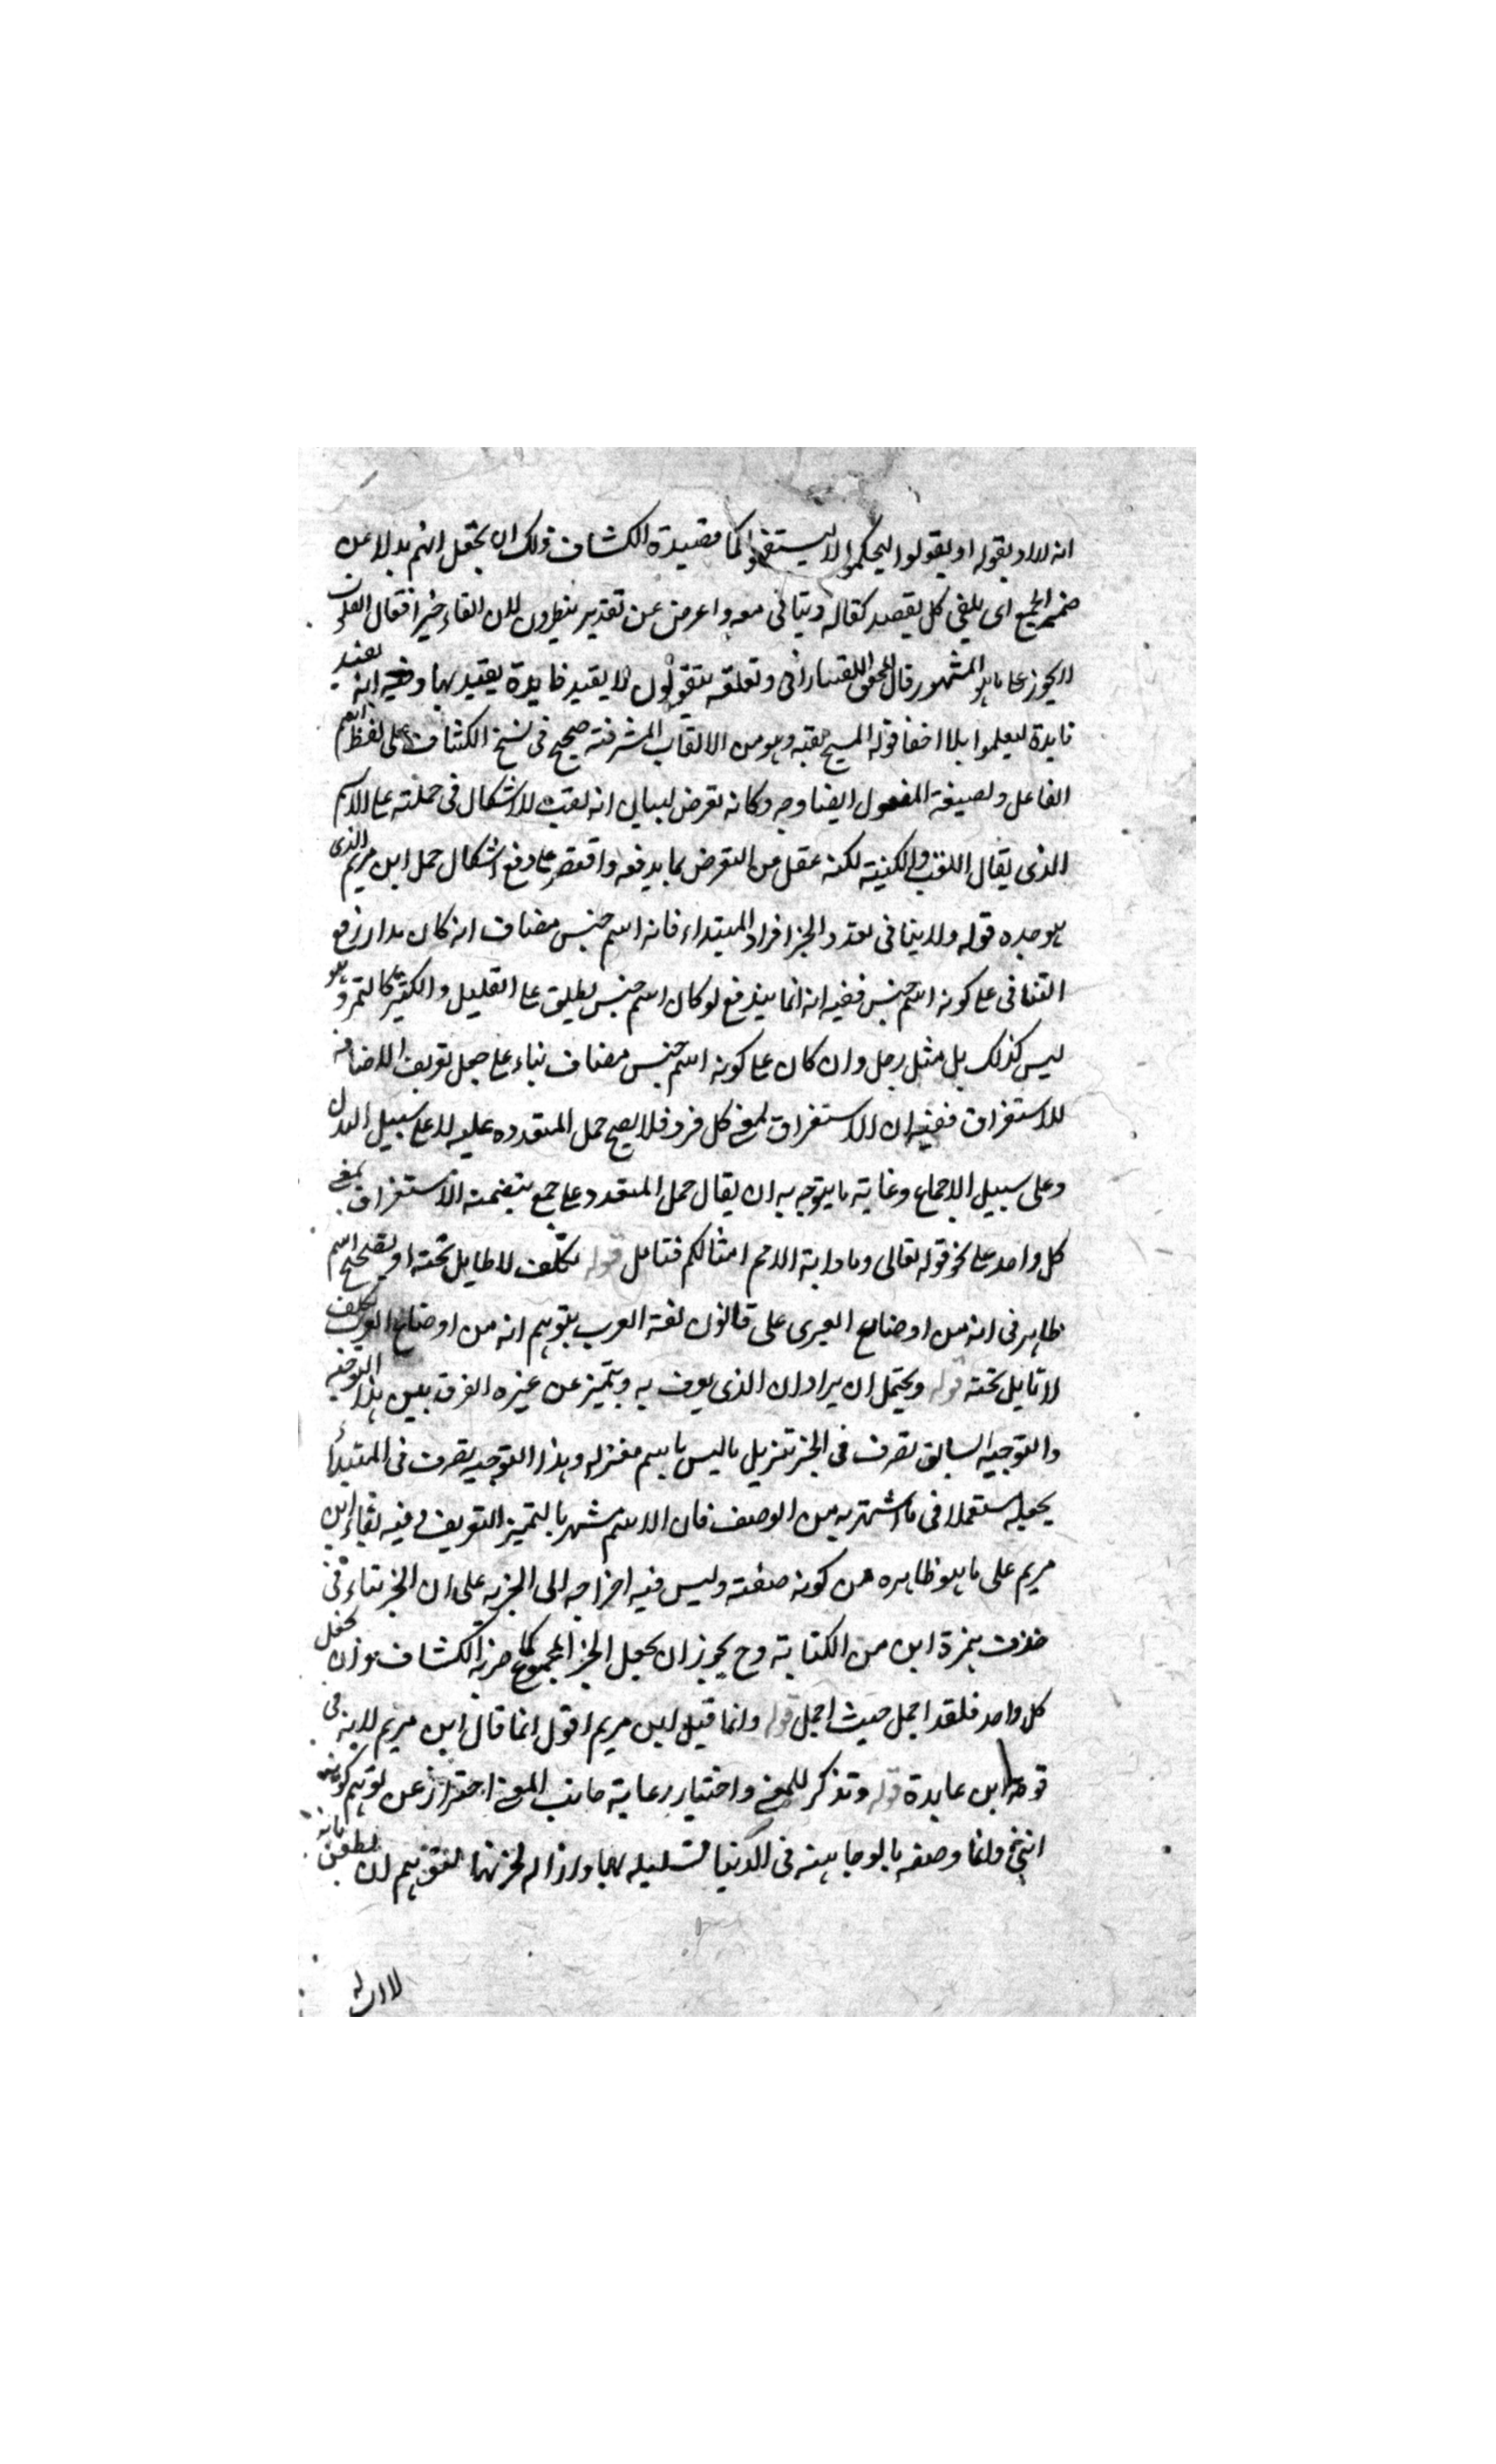 انه لا او بقوله او يقولوا ليحكموا لا ليستفدوا كما قصده الكشاف ولك ان تجعل ايهم بدلا عن
ضمير الجمع اى يلقى كل بقصد كفاله ويتأتى معه واعرض عن تقدير ينظرون لان القاء خير افعال القلوب
لا يجوز على ما هو المشهور قال المحقق التفتازانى وتعلقه بيقولون لا يفيد فايدة يعتد بها وفيه انه يفيد
فايدة ليعلموا بلا اخفا قوله المسيح لقبه وهو من الالقاب المشرفة صحيح فى نسخ الكشاف على لفظ اسم
الفاعل ولصيغة المفعول ايضا وجه وكانه تعرض لبيان انه لقب للاشكال فى حملته على الاسم
الذى يقال اللقب والكنية لكنه غفل من التعرض بما يدفعه واقتصر على دفع اشكال حمل ابن مريم الذى
هو جده قوله ولا ينافى تعدد الخبر افراد المبتداء فانه اسم جنس مضاف انه كان مدار رفع
التنافى على كونه اسم جنس ففيه انه انما يندفع لو كان اسم جنس يطلق على القليل والكثير كالتمر وهو
ليس كذلك بل مثل رجل وان كان على كونه اسم جنس مضاف بناء على جعل تعريف الاضافة
للاستغراق ففيه ان الاستغراق بمعنى كل فرد فلا يصح حمل المتعدده عليه لا على سبيل البدل
وعلى سبيل الاجماع وغاية ما يتوجه به ان يقال حمل المتعدد على جمع يتضمنه الاستغراق بمعنى
كل واحد على نحو قوله تعالى وما دابة الا امم امثالكم فتامل قوله تكلف لا طايل تحته او تصحيح اسم
ظاهر فى انه من اوضاع العبرى على قانون لغة العرب بتوهم انه من اوضاع العرب تكلف
لا تايل تحته قوله ويحتمل ان يراد ان الذى يعرف به ويتميز عن غيره الفرق بين هذا التوجيه
والتوجيه السابق تصرف فى الخبر تنزيل ما ليس باسم منزلته وهذا التوجيه تصرف فى المبتدأ
بجعله مستعملا فى ما اشتهر به من الوصف فان الاسم مشهر بالتميز التعريف وفيه بقاء ابن
مريم على ما هو ظاهره من كونه صفته وليس فيه اخراجه الى الخبرية على ان الخبر يتاء فى
حذف همزة ابن من الكتابة وح يجوز ان يجعل الخبر المجموع كما صرح به الكشاف وان يجعل
كل واحد فلقد اجمل حيث اجمل قوله وانما قيل ابن مريم اقول انما قال ابن مريم لانه فى
قوة ابن عابدة قوله وتذكر للمعنى واختيار رعاية جانب المعنى احتراز عن توهم كونه
انثى وانما وصفه بالوجاهة فى الدنيا تسليه لها وازاله لحزنها لتوهم ان يطعن بانه
لا اب له